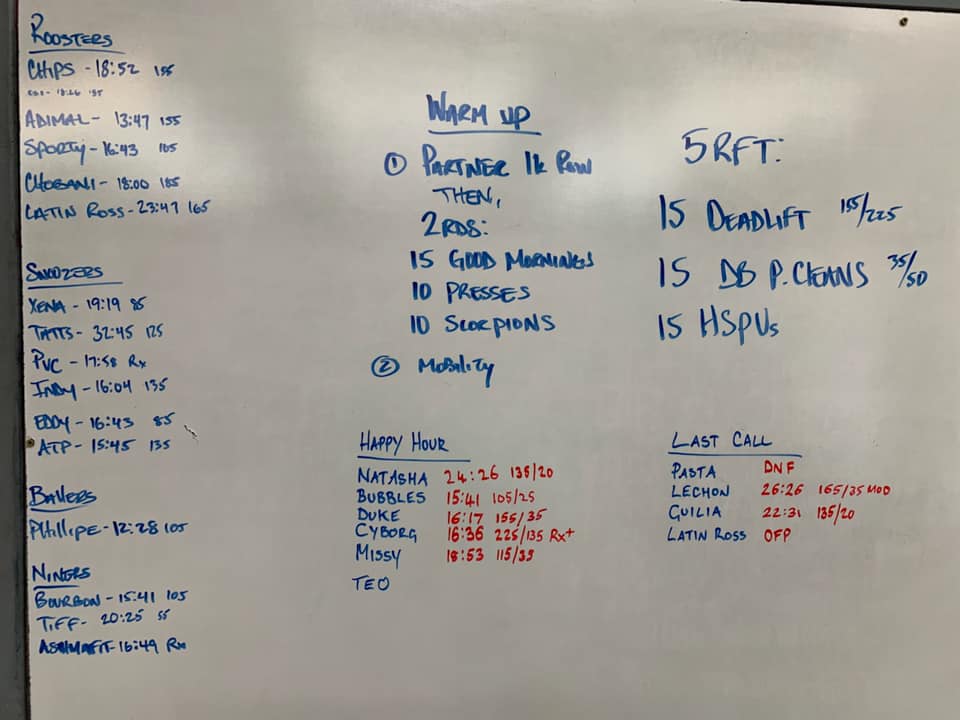 ROOSTERS
CHIPS - 18:52 155
ADIMAL - 13:47 155
SPORTY - 16:43 105
CHOBANI - 18:00 185
LATIN ROSS - 23:47 165
SNOOZERS
XENA - 19:19 85
TATTS - 32:45 125
PVC - 17:58 Rx
INDY - 16:04 135
EDDY - 16:43 85
ATP - 15:45 135
BALLERS
PHILLIPE - 12:28 105
NINERS
BOURBON - 15:41 105
TIFF - 20:25 55
ASHMAFIT - 16:49 Rx
WARM UP
① PARTNER 1k ROW
THEN,
2RDS:
15 GOOD MORNINGS
10 PRESSES
10 SCORPIONS
② MOBILITY
5 RFT:
15 DEADLIFT 155/225
15 DB P. CLEANS 35/50
15 HSPUs
HAPPY HOUR
NATASHA 24:26 135/20
BUBBLES 15:41 105/25
DUKE 16:17 155/35
CYBORG 16:36 225/135 Rx+
MISSY 18:53 115/35
TEO
LAST CALL
PASTA DNF
LECHON 26:26 165/35 MOD
GUILIA 22:31 135/20
LATIN ROSS OFP